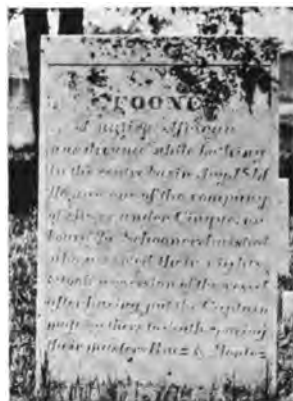 FOONE
A native African
was drowned while bathing
in the centre basin Aug. 1841
He was one of the company
of slaves under Cinque, on
board the Schooner Amistad
who asserted their rights
& took possession of the vessel
after having put the Captain
to death sparing
their masters Ruez & Montez